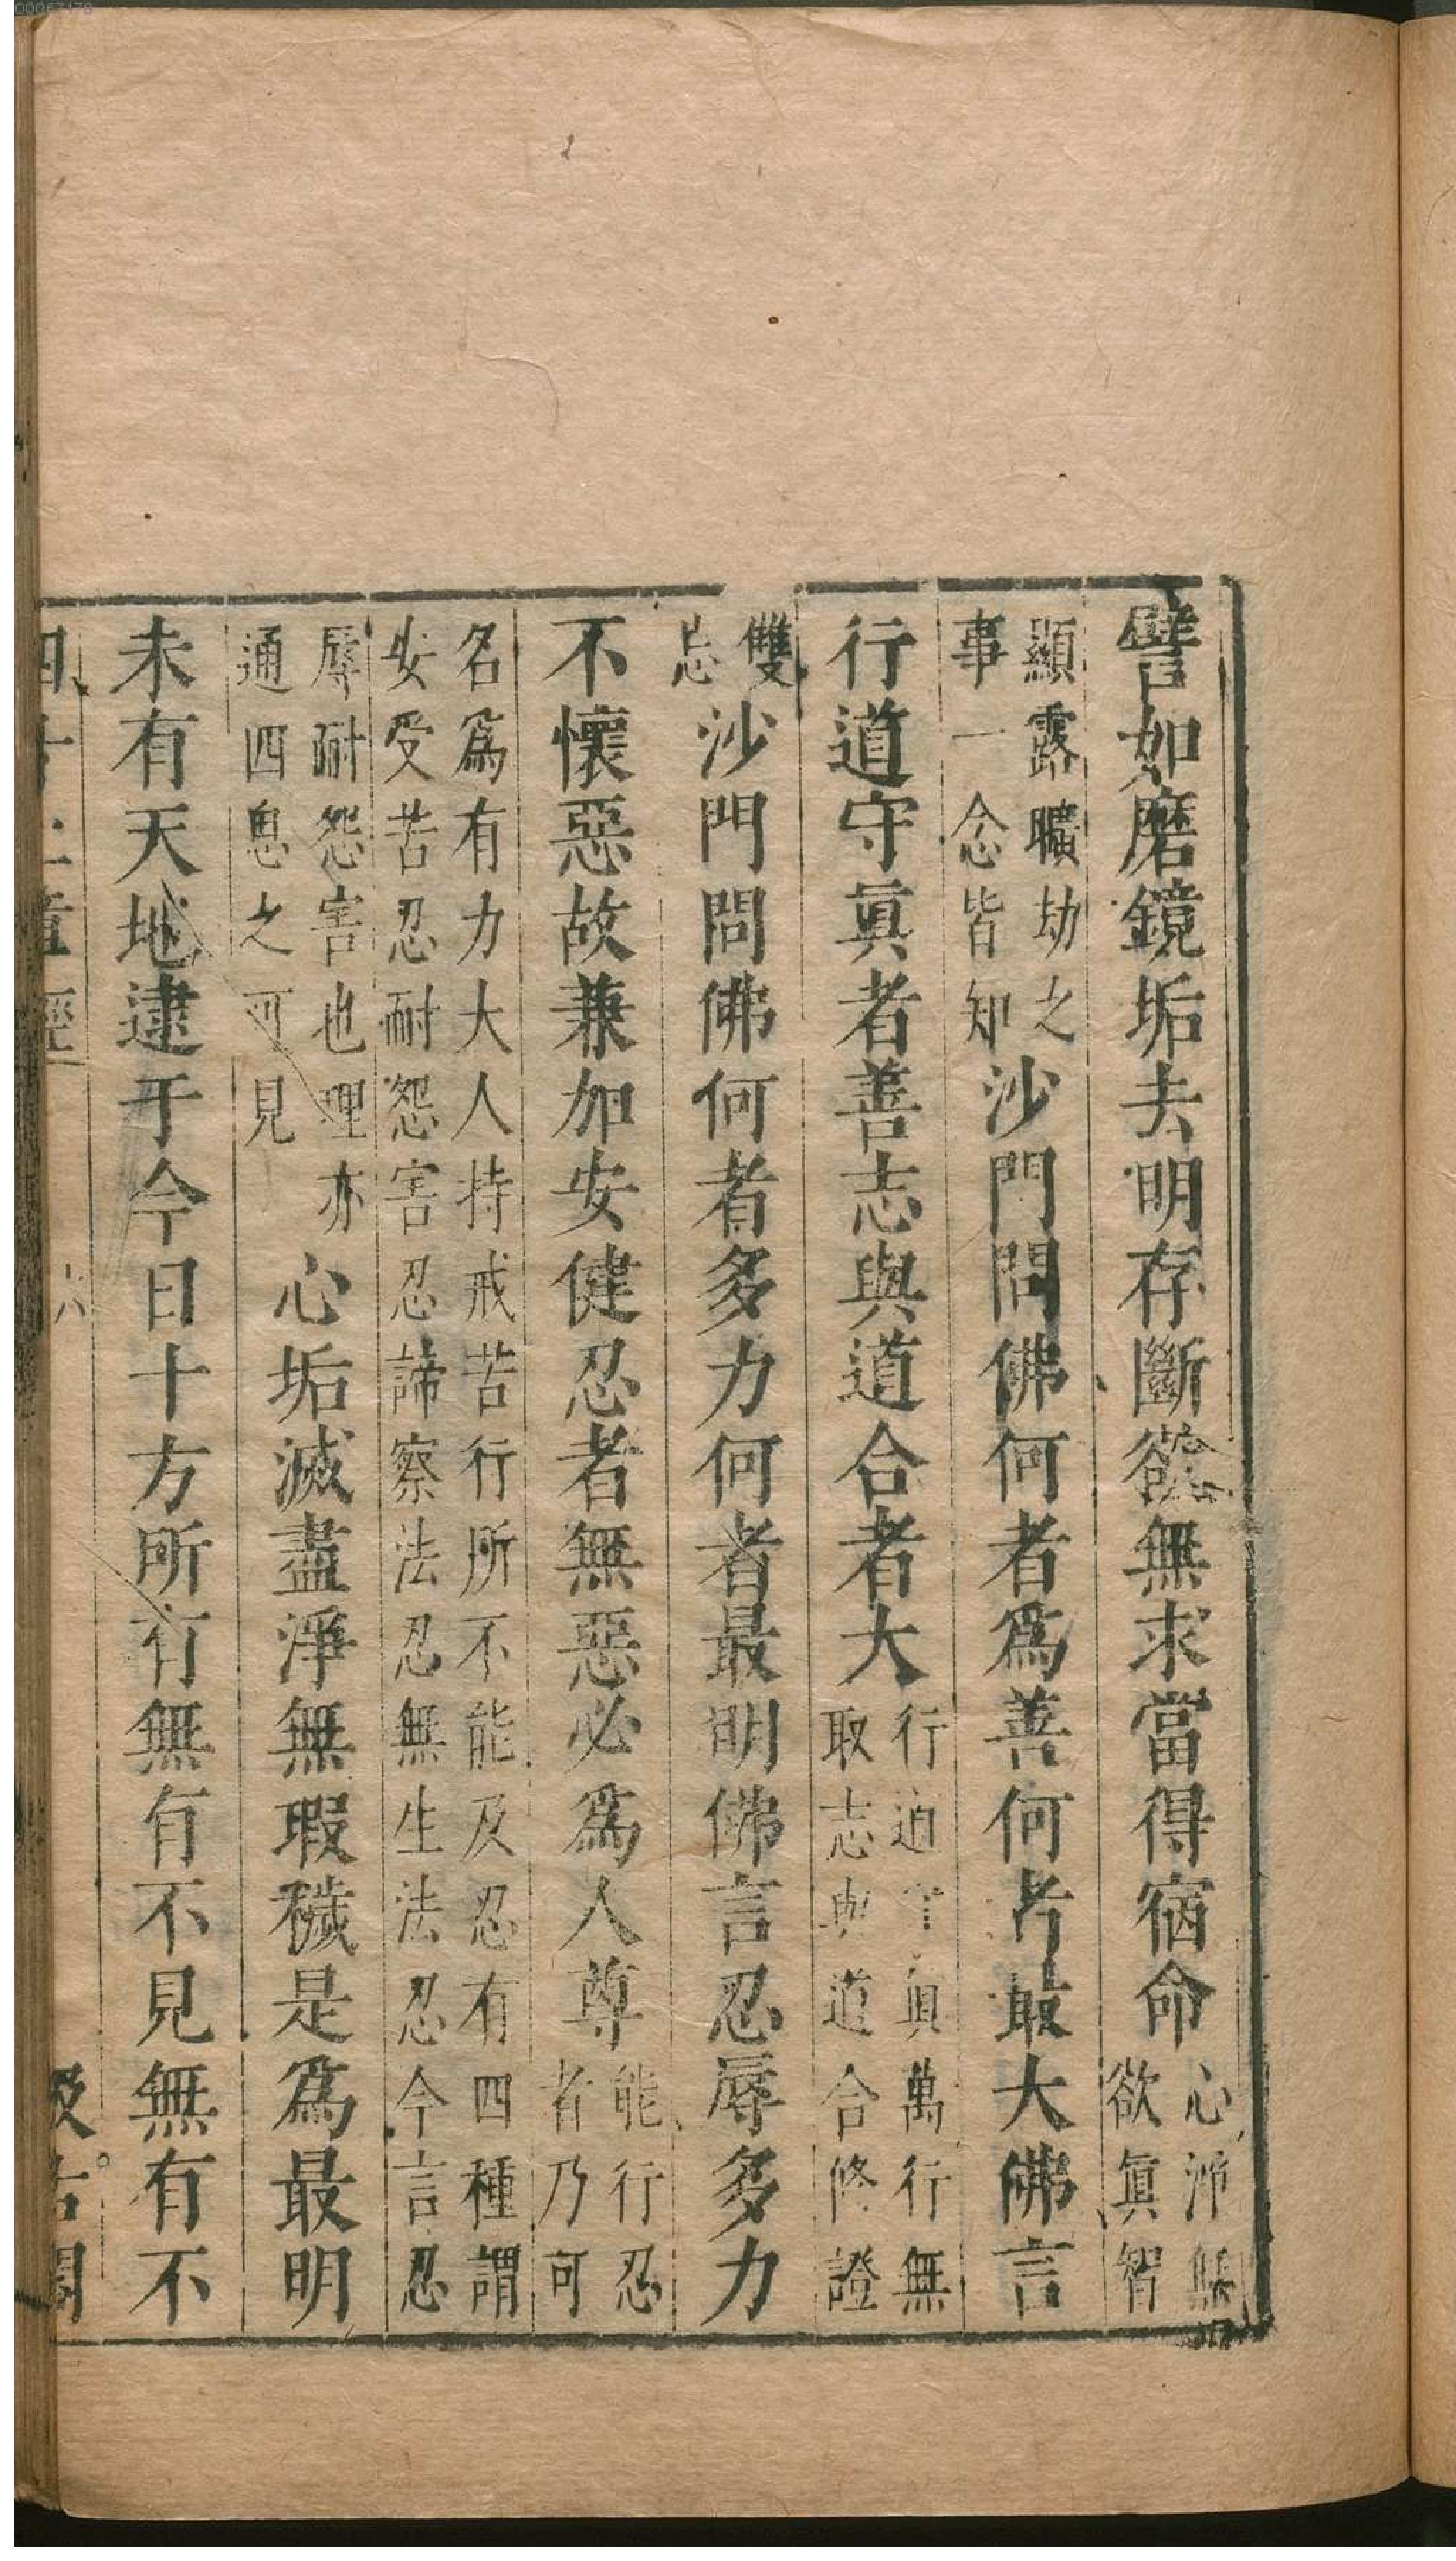 譬如磨鏡垢去明存斷欲無求當得宿命
心淨無
欲眞智
顯露曠劫之
事一念皆知
沙門問佛何者爲善何者最大佛言
行道守眞者善志與道合者大
行道守眞萬行無
取志與道合修證
雙
忘
沙門問佛何者多力何者最明佛言忍辱多力
不懷惡故兼加安健忍者無惡必爲人尊
能行忍
者乃可
名爲有力大人持戒苦行所不能及忍有四種謂
安受苦忍耐怨害忍諦察法忍無生法忍今言忍
辱耐怨害也理亦
通四息之可見
心垢滅盡淨無瑕穢是爲最明
未有天地逮于今日十方所有無有不見無有不
四十二章經
六
汲古閣
00067478